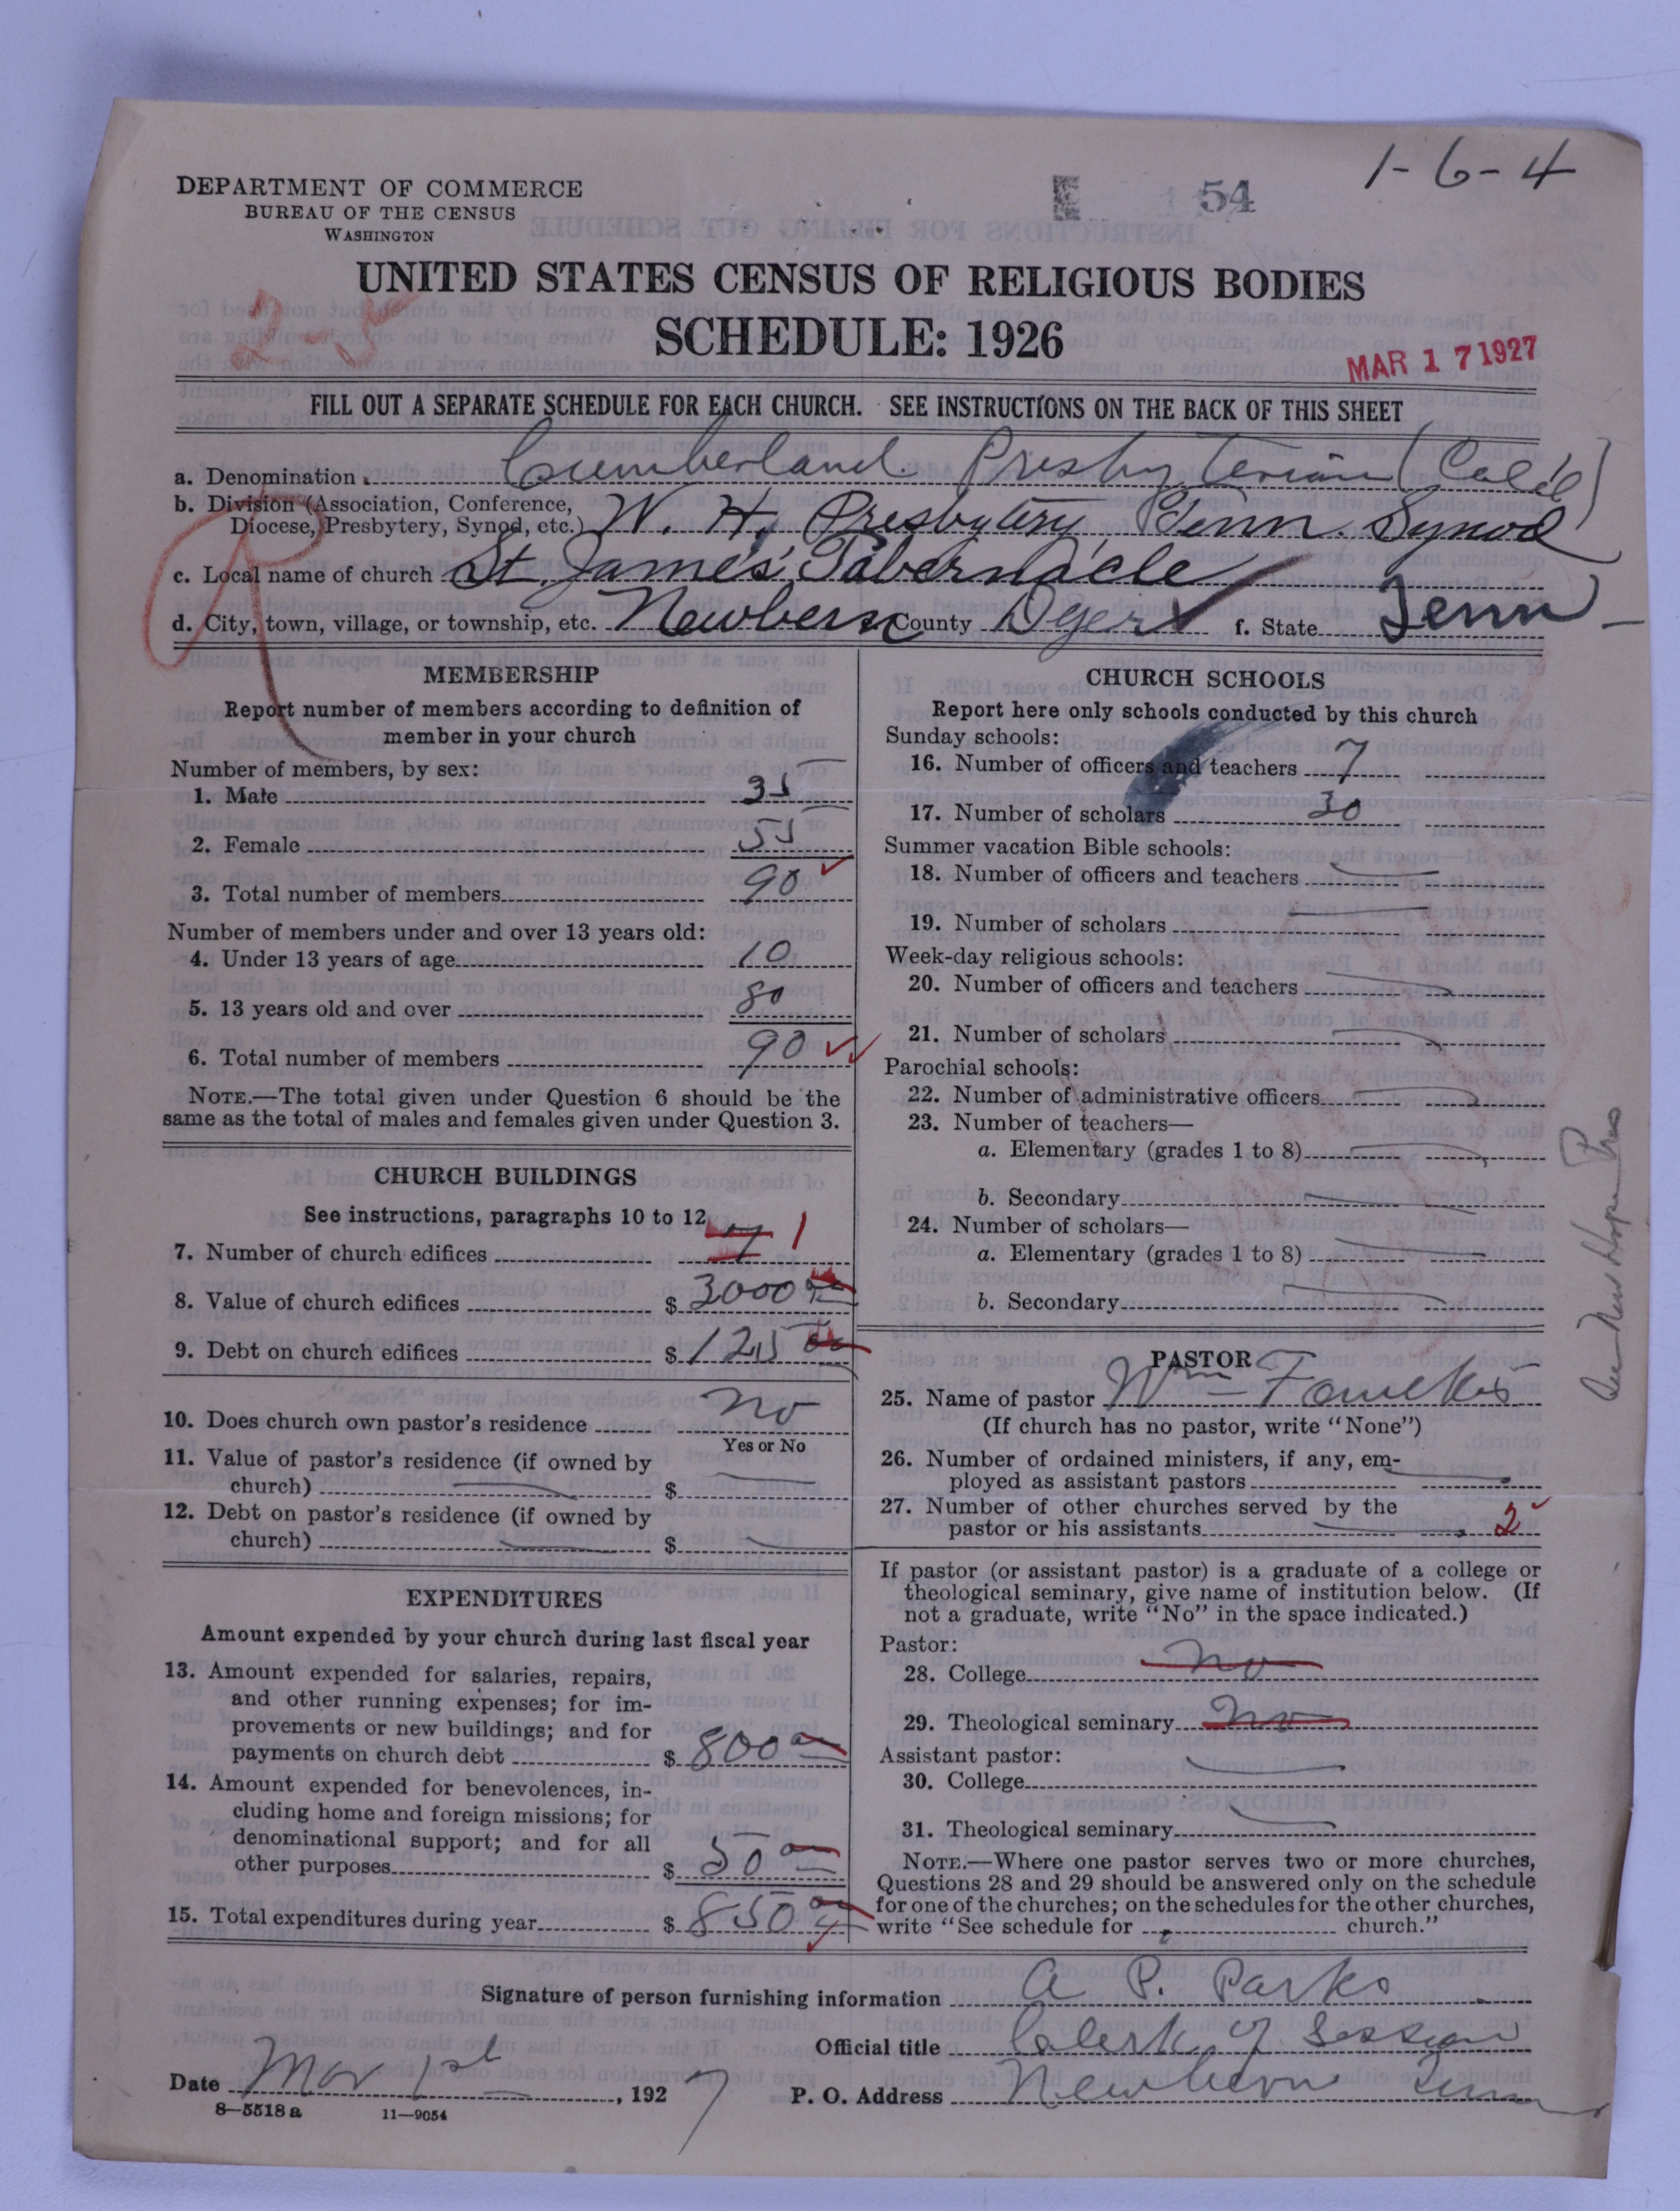 1-6-4
54
DEPARTMENT OF COMMERCE
BUREAU OF THE CENSUS
WASHINGTON
UNITED STATES CENSUS OF RELIGIOUS BODIES
SCHEDULE: 1926
MAR 17 1927
FILL OUT A SEPARATE SCHEDULE FOR EACH CHURCH. SEE INSTRUCTIONS ON THE BACK OF THIS SHEET
a. Denomination Cumberland Presbyterian (Col'd)
b. Division (Association, Conference,
Diocese, Presbytery, Synod, etc.) W. H. Presbytery, Tenn. Synod
c. Local name of church St. James' Tabernacle
d. City, town, village, or township, etc. Newbern County Dyer f. State Tenn
MEMBERSHIP
Report number of members according to definition of
member in your church
Number of members, by sex:
1. Male 35
2. Female 55
3. Total number of members 90
Number of members under and over 13 years old:
4. Under 13 years of age 10
5. 13 years old and over 80
6. Total number of members 90
NOTE.—The total given under Question 6 should be the
same as the total of males and females given under Question 3.
CHURCH BUILDINGS
See instructions, paragraphs 10 to 12
7. Number of church edifices 1
8. Value of church edifices $ 3000 00
9. Debt on church edifices $ 125 00
10. Does church own pastor's residence no
Yes or No
11. Value of pastor's residence (if owned by
church) $
12. Debt on pastor's residence (if owned by
church) $
EXPENDITURES
Amount expended by your church during last fiscal year
13. Amount expended for salaries, repairs,
and other running expenses; for im-
provements or new buildings; and for
payments on church debt $ 800 00
14. Amount expended for benevolences, in-
cluding home and foreign missions; for
denominational support; and for all
other purposes $ 50 00
15. Total expenditures during year $ 850 00
CHURCH SCHOOLS
Report here only schools conducted by this church
Sunday schools:
16. Number of officers and teachers 7
17. Number of scholars 30
Summer vacation Bible schools:
18. Number of officers and teachers
19. Number of scholars
Week-day religious schools:
20. Number of officers and teachers
21. Number of scholars
Parochial schools:
22. Number of administrative officers
23. Number of teachers—
a. Elementary (grades 1 to 8)
b. Secondary
24. Number of scholars—
a. Elementary (grades 1 to 8)
b. Secondary
PASTOR
25. Name of pastor Wm
(If church has no pastor, write "None")
26. Number of ordained ministers, if any, em-
ployed as assistant pastors
27. Number of other churches served by the
pastor or his assistants 2
If pastor (or assistant pastor) is a graduate of a college or
theological seminary, give name of institution below. (If
not a graduate, write "No" in the space indicated.)
Pastor:
28. College no
29. Theological seminary no
Assistant pastor:
30. College
31. Theological seminary
NOTE.—Where one pastor serves two or more churches,
Questions 28 and 29 should be answered only on the schedule
for one of the churches; on the schedules for the other churches,
write "See schedule for church."
See New Hope Pres
Signature of person furnishing information A. P. Parks
Official title Clerk of Session
Date Mar 1st, 1927 P. O. Address Newbern Tenn
8—5518 a 11—9054